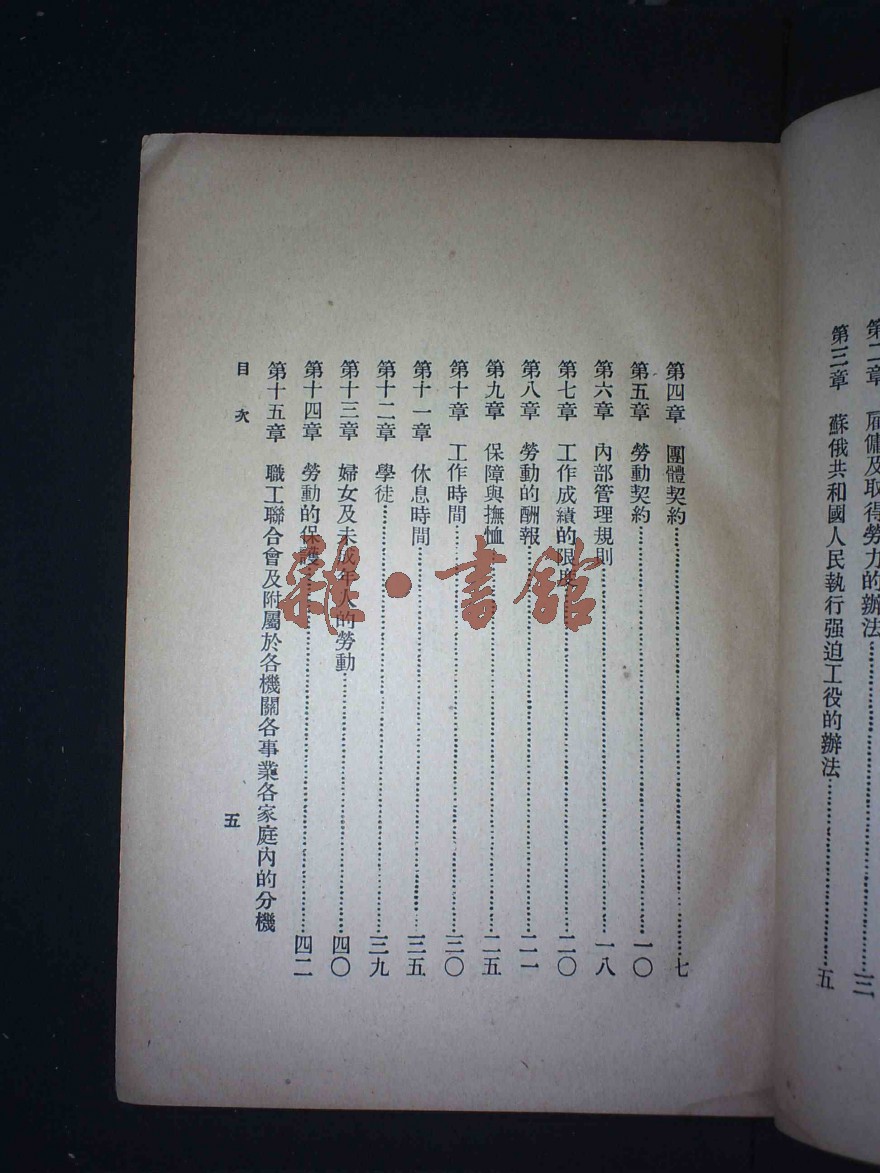 第二章　雇傭及取得勞力的辦法……三
第三章　蘇俄共和國人民執行强迫工役的辦法……五
第四章　團體契約……七
第五章　勞動契約……一〇
第六章　內部管理規則……一八
第七章　工作成績的限度……二〇
第八章　勞動的酬報……二一
第九章　保障與撫恤……二五
第十章　工作時間……三〇
第十一章　休息時間……三五
第十二章　學徒……三九
第十三章　婦女及未成年人的勞動……四〇
第十四章　勞動的保護……四二
第十五章　職工聯合會及附屬於各機關各事業各家庭內的分機
目次
五
雜·書館